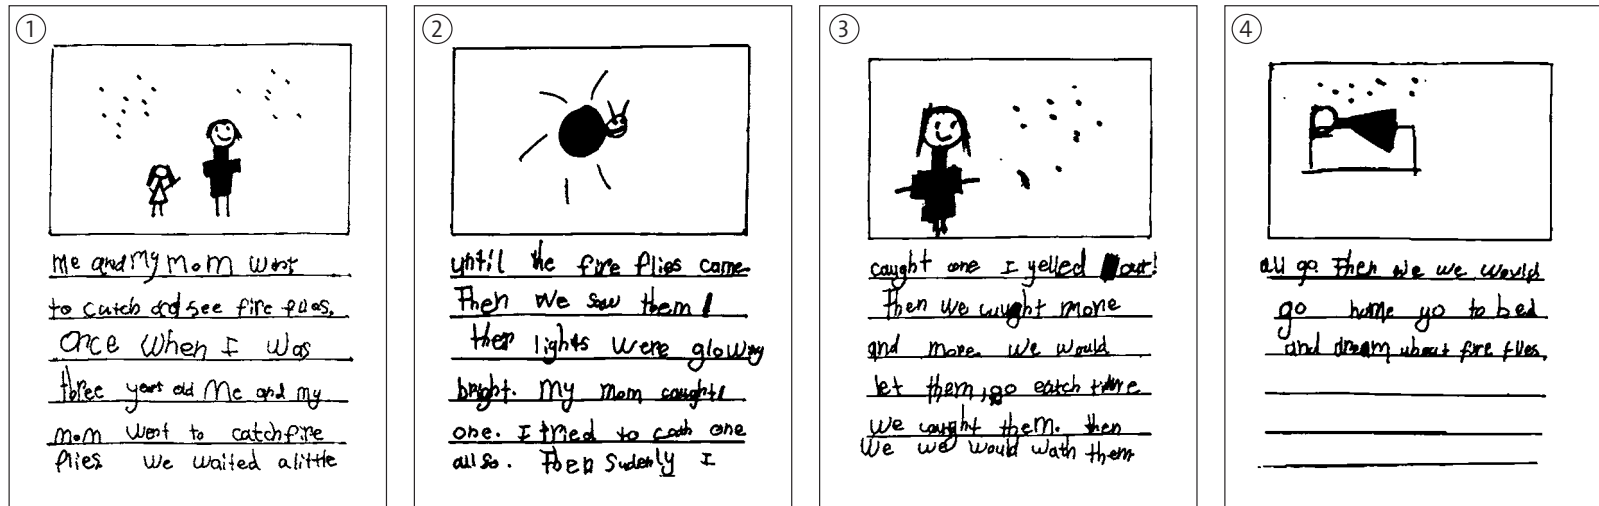 ①
me and my mom went
to catch and see fire flies.
once when I was
three years old Me and my
mom went to catch fire
flies we waited a little
②
until the fire flies came.
Then we saw them!
ther lights were glowing
bright. My mom caught
one. I tried to cath one
allso. Then sudenly I
③
caught one I yelled out!
Then we caught more
and more. we would
let them go eatch time
we caught them. then
We we would wath them
④
all go. Then we we would
go home go to bed
and dream about fire flies.